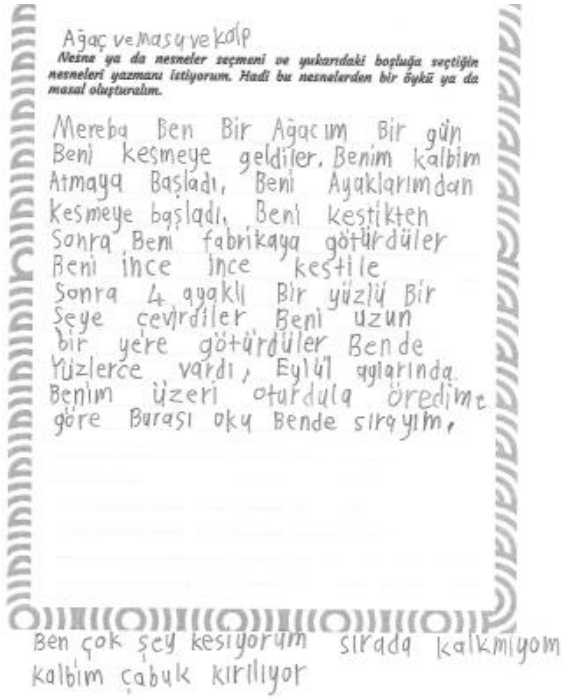 Ağaç ve Masa ve kalp
Nesne ya da nesneler seçmeni ve yukarıdaki boşluğa seçtiğin
nesneleri yazmanı istiyorum. Hadi bu nesnelerden bir öykü ya da
masal oluşturalım.
Mereba Ben Bir Ağacım Bir gün
Beni kesmeye geldiler. Benim kalbim
Atmaya Başladı, Beni Ayaklarımdan
kesmeye başladı, Beni kestikten
Sonra Beni fabrikaya götürdüler
Beni ince ince kestile
Sonra 4 ayaklı Bir yüzlü Bir
Şeye çevirdiler Beni uzun
bir yere götürdüler Bende
Yüzlerce vardı, Eylül aylarında
Benim üzeri oturdula öredime
göre Burası oku Bende sırayım,
Ben çok şey kesiyorum sırada kalkmıyom
kalbim çabuk kırılıyor